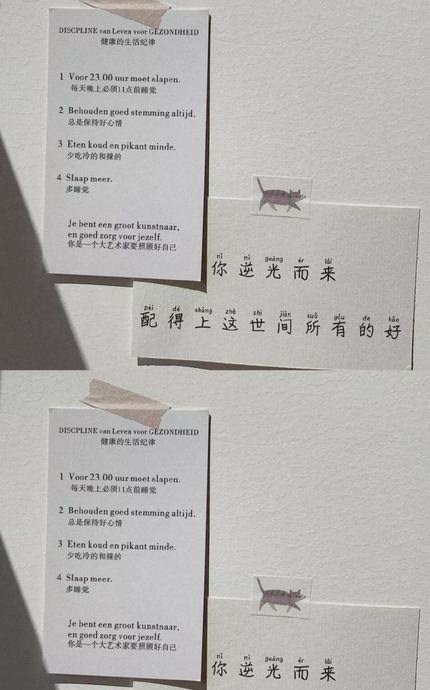 DISCPLINE van Leven voor GEZONDHEID
健康的生活纪律
1 Voor 23.00 uur moet slapen.
每天晚上必须11点前睡觉
2 Behouden goed stemming altijd.
总是保持好心情
3 Eten koud en pikant minde.
少吃冷的和辣的
4 Slaap meer.
多睡觉
Je bent een groot kunstnaar,
en goed zorg voor jezelf.
你是一个大艺术家要照顾好自己
nǐ nì guāng ér lái
你逆光而来
pèi dé shàng zhè shì jiān suǒ yǒu de hǎo
配得上这世间所有的好
DISCPLINE van Leven voor GEZONDHEID
健康的生活纪律
1 Voor 23.00 uur moet slapen.
每天晚上必须11点前睡觉
2 Behouden goed stemming altijd.
总是保持好心情
3 Eten koud en pikant minde.
少吃冷的和辣的
4 Slaap meer.
多睡觉
Je bent een groot kunstnaar,
en goed zorg voor jezelf.
你是一个大艺术家要照顾好自己
nǐ nì guāng ér lái
你逆光而来